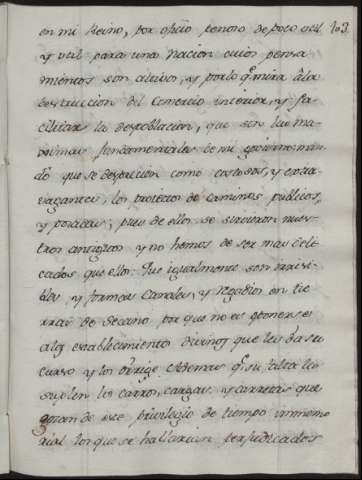 en mi Reino, por oficio penoso de poco util 103
y vtil para una Nacion cuios pensa
mientos son altivos, y por lo q. mira â la
destruccion del Comercio interior, y fa-
cilitar la despoblacion, que son las ma-
ximas fundamentales de mi govierno man-
do que se desprecien como costosos, y extra-
vagantes, los proiectos de caminos publicos,
y posadas; pues de ellos se sirvieron nues-
tros antiguos y no hemos de ser mas deli-
cados que ellos. Que igualmente son
y formar Canales, y Regadios en tie
rras de secano por que no es oponerse
a los establecimientos divinos que les da su
curso y los dirige. Ademas q. su falta la
suplen los carros, cargas, y carretas que
gozan de este privilegio de tiempo inmemo
rial los que se hallarian perjudicados